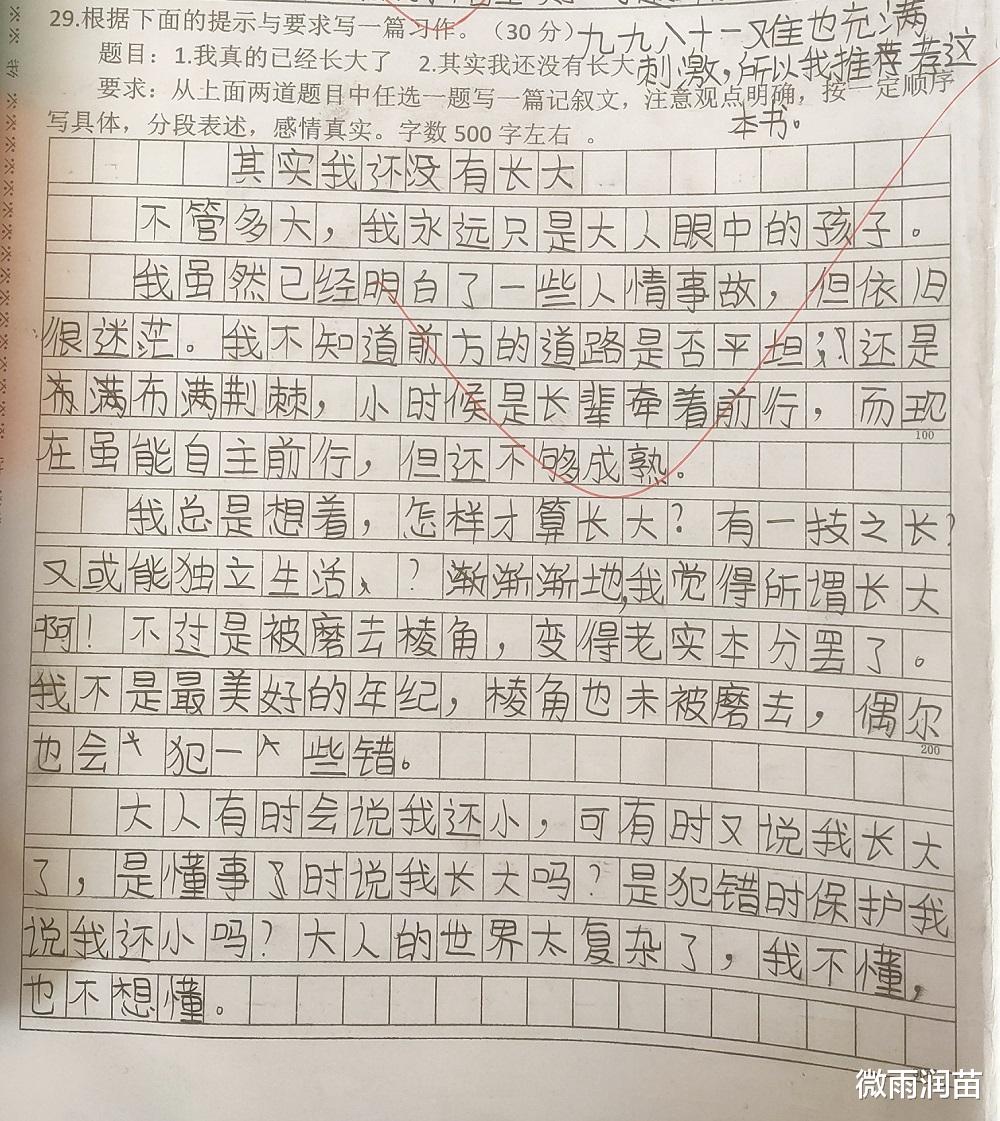 29.根据下面的提示与要求写一篇习作。（30 分）
九九八十一难也充满
题目：1.我真的已经长大了 2.其实我还没有长大
刺激,所以我推荐荐这
要求：从上面两道题目中任选一题写一篇记叙文，注意观点明确，按一定顺序
本书。
写具体，分段表述，感情真实。字数 500 字左右 。
其实我还没有长大
不管多大，我永远只是大人眼中的孩子。
我虽然已经明白了一些人情事故，但依旧
很迷茫。我不知道前方的道路是否平坦；还是
布满布满荆棘，小时候是长辈牵着前行，而现
100
在虽能自主前行，但还不够成熟。
我总是想着，怎样才算长大？有一技之长？
又或能独立生活、？渐渐渐地,我觉得所谓长大
啊！不过是被磨去棱角，变得老实本分罢了。
我不是最美好的年纪，棱角也未被磨去，偶尔
200
也会犯一些错。
大人有时会说我还小，可有时又说我长大
了，是懂事了时说我长大吗？是犯错时保护我
说我还小吗？大人的世界太复杂了，我不懂，
也不想懂。
微雨润苗